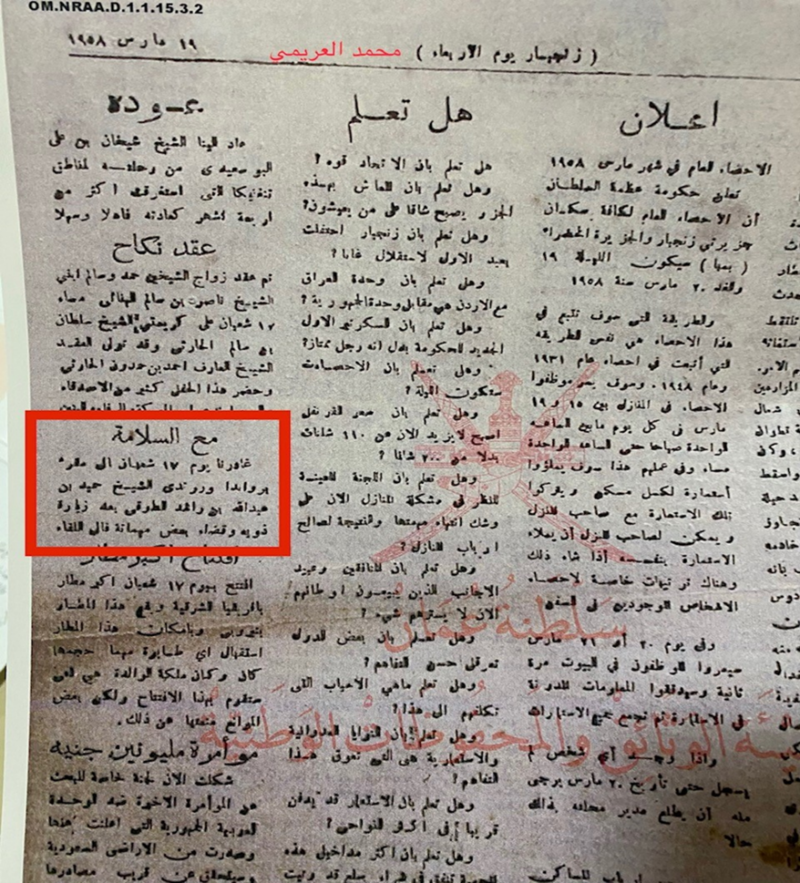 OM.NRAA.D.1.1.15.3.2
( زنجبار يوم الاربعاء )
محمد العريمي
١٩ مارس ١٩٥٨
اعلان
الاحصاء العام في شهر مارس ١٩٥٨
تعلن حكومة عظمة السلطان
أن الاحصاء العام لكافة سكان
جزيرتي زنجبار والجزيرة الخضراء
( بمبا ) سيكون الليلة ١٩
والغد ٢٠ مارس سنة ١٩٥٨
والطريقة التي سوف تتبع في
هذا الاحصاء هي نفس الطريقه
التي أتبعت في احصاء عام ١٩٣١
وعام ١٩٤٨. وسوف يمر موظفوا
الاحصاء في المنازل بين ١٥ و ١٩
مارس في كل يوم مابين الساعه
الواحدة صباحا حتى الساعه الواحدة
مساء وفي عملهم هذا سوف يملؤوا
أستمارة لكل مسكن ويتركوا
تلك الاستمارة مع صاحب المنزل
ويمكن لصاحب المنزل أن يملاء
الاستمارة بنفسه أذا شاء ذلك
وهناك ترتيبات خاصة لاحصاء
الاشخاص الموجودين في السفن
وفي يوم ٢٠ أو ٢١ مارس
سيمروا الموظفون في البيوت مرة
ثانية وسيدققوا المعلومات المدونة
في الاستمارة ثم تجمع جميع الاستمارات
واذا وجد أي شخص لم
يسجل حتى تأريخ ٢٠ مارس يرجى
منه أن يطلع مدير محلته بذلك
حالا
هل تعلم
هل تعلم بان الاتحاد قوه ؟
وهل تعلم بان المعاش بهذه
الجزر يصبح شاقا على من يعيشون؟
وهل تعلم بان زنجبار احتفلت
بعيد الاول لاستقلال غانا ؟
وهل تعلم بان وحدة العراق
مع الاردن هي مقابل وحدة الجمهورية ؟
وهل تعلم بان السكرتير الاول
الجديد للحكومة يدل انه رجل ممتاز؟
وهل تعلم بان الاحصاءات
ستكون الليلة ؟
وهل تعلم بان سعر القرنفل
اصبح لا يزيد الان عن ١١٠ شلنات
بدلا من ٢٠٠ شانا ؟
وهل تعلم بان اللجنة المعينة
للنظر في مشكلة المنازل الان على
وشك انتهاء مهمتها والنتيجة لصالح
ارباب المنازل ؟
وهل تعلم بان المنافقين وعبيد
الاجانب الذين يبيعون اوطانهم
الان لا يسترهم شيء ؟
وهل تعلم بان بعض الدول
تعرقل حسن التفاهم ؟
وهل تعلم ماهي الاسباب التي
تكلفهم الى هذا ؟
وهل تعلم بان النوايا العدوانية
والاستعمارية هي التي تعوق هذا
التفاهم ؟
وهل تعلم بان الاستعمار قد يدفن
قريبا في اكثر النواحي ؟
وهل تعلم بان اكثر مداخيل هذه
عودة
عاد الينا الشيخ شيخان بن على
البوسعيدى من رحلته لمناطق
تنغنيكا التى استغرقت اكثر من
اربعة اشهر كعادته فاهلا وسهلا
عقد نكاح
تم عقد زواج الشيخين حمد وسالم ابني
الشيخ ناصر بن سالم البهلاني مساء
١٧ شعبان على كريمتي الشيخ سلطان
بن سالم الحارثي وقد تولى العقد
الشيخ العارف احمد بن حمدون الحارثي
وحضر هذا الحفل كثير من الاصدقاء
مع السلامة
غادرنا يوم ١٧ شعبان الى مقره
برواندا وروندى الشيخ حميد بن
عبدالله بن راشد الطوقي بعد زيارة
ذويه وقضاء بعض مهماته فالى اللقاء
افتتاح اكبر مطار
افتتح بيوم ١٧ شعبان اكبر مطار
بافريقيا الشرقية ويقع هذا المطار
بنيروبي وبامكان هذا المطار
استقبال اي طايرة مهما حجمها
كان وكان ملكة الوالدة هي لمن
ستقوم بهذا الافتتاح ولكن بعض
الموانع منعتها عن ذلك.
مؤامرة مليونين جنيه
شكلت الان لجنة خاصة للبحث
عن المؤامرة الاخيرة ضد الوحدة
العربية الجمهورية التي اعلنت عنها
وصدرت من الاراضى السعودية
سلطنة عمان
هيئة الوثائق والمحفوظات الوطنية